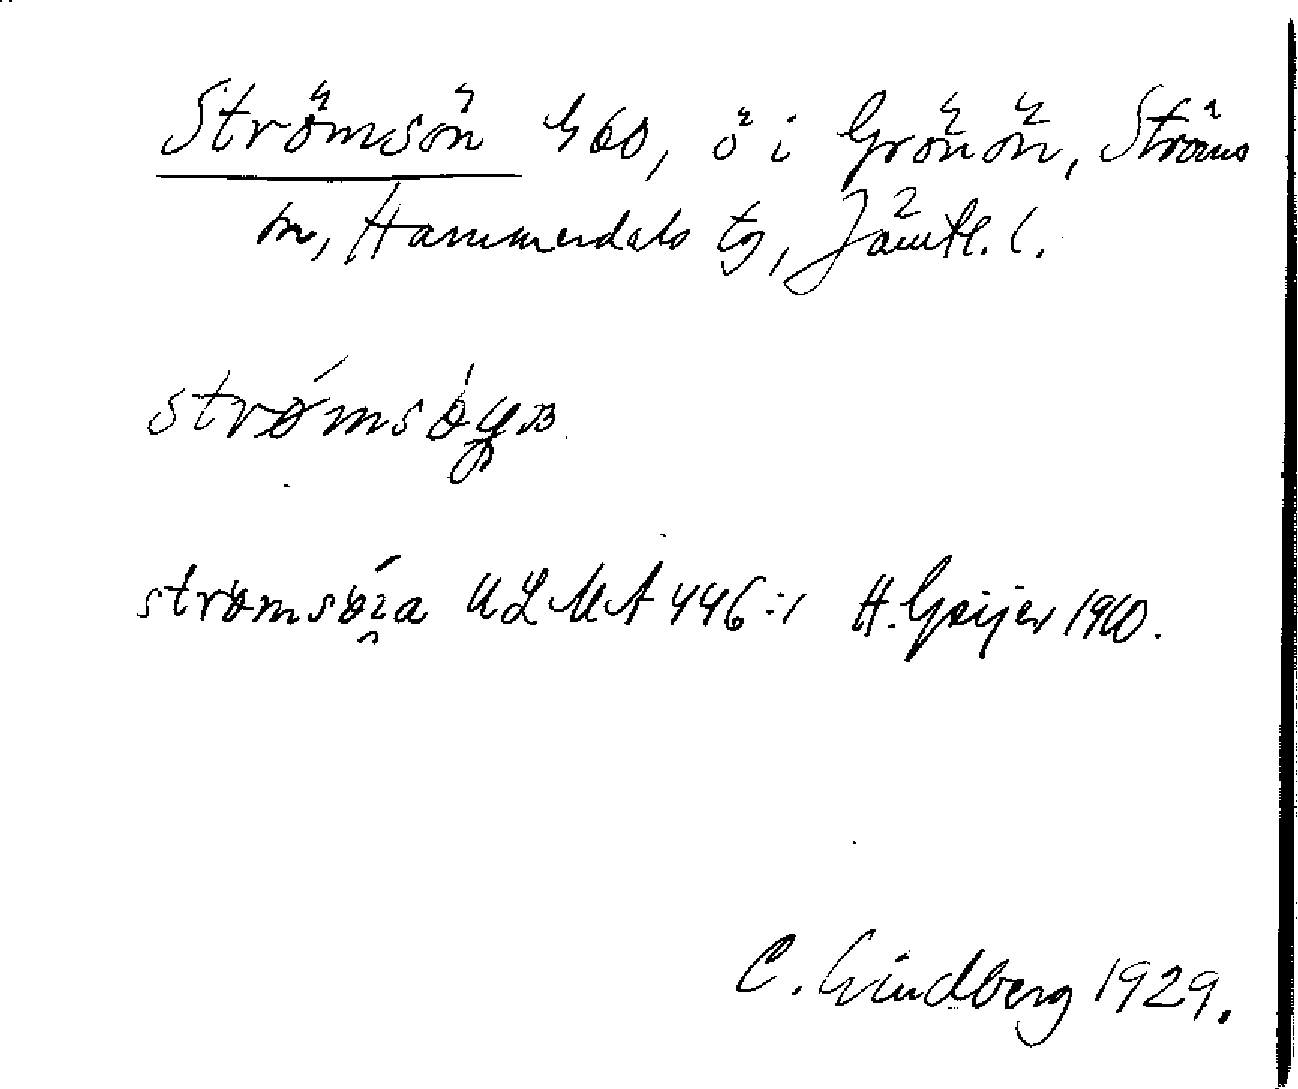 Strömsön 460, ö i Grönön, Ströms
sn, Hammerdals tg, Jämtl. l.
strømsø
strømsøɪa ULMA 446:1 H. Geijer 1960.
C. Lindberg 1929.